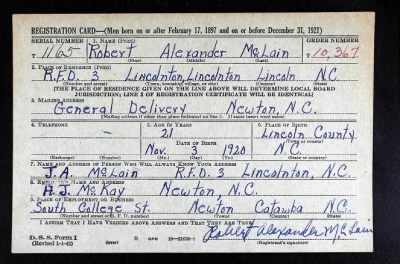 REGISTRATION CARD—(Men born on or after February 17, 1897 and on or before December 31, 1921)
SERIAL NUMBER 1. NAME (Print) ORDER NUMBER
T 1165 Robert Alexander McLain 10,367
(First) (Middle) (Last)
2. PLACE OF RESIDENCE (Print)
R.F.D. 3 Lincolnton, Lincolnton Lincoln N.C.
(Number and street) (Town, township, village, or city) (County) (State)
[THE PLACE OF RESIDENCE GIVEN ON THE LINE ABOVE WILL DETERMINE LOCAL BOARD
JURISDICTION; LINE 2 OF REGISTRATION CERTIFICATE WILL BE IDENTICAL]
3. MAILING ADDRESS
General Delivery Newton, N.C.
[Mailing address if other than place indicated on line 2. If same insert word same]
4. TELEPHONE 5. AGE IN YEARS 6. PLACE OF BIRTH
– 21 Lincoln County
DATE OF BIRTH (Town or county)
Nov. 3 1920 N.C.
(Exchange) (Number) (Mo.) (Day) (Yr.) (State or country)
7. NAME AND ADDRESS OF PERSON WHO WILL ALWAYS KNOW YOUR ADDRESS
J.A. McLain R.F.D. 3 Lincolnton, N.C.
8. EMPLOYER'S NAME AND ADDRESS
H.J. McKay Newton, N.C.
9. PLACE OF EMPLOYMENT OR BUSINESS
South College St. Newton Catawba N.C.
(Number and street or R. F. D. number) (Town) (County) (State)
I AFFIRM THAT I HAVE VERIFIED ABOVE ANSWERS AND THAT THEY ARE TRUE.
D. S. S. Form 1
(Revised 1-1-42) (over) Robert Alexander McLain
(Registrant's signature)